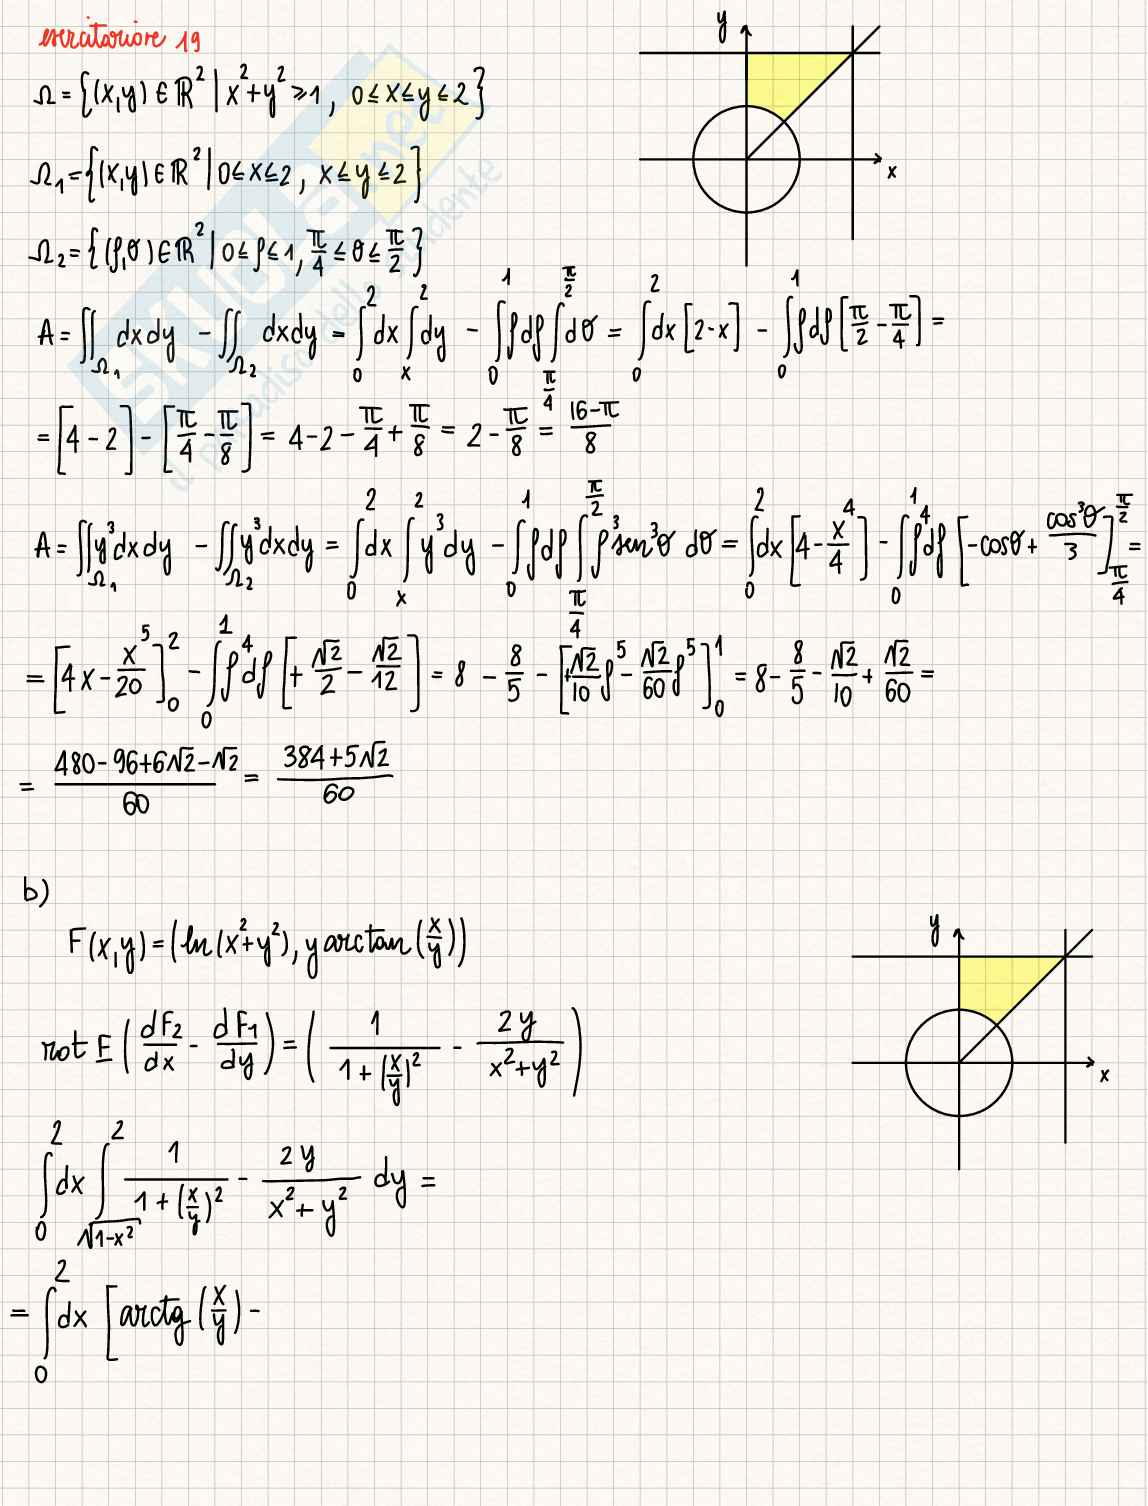 esercitazione 19
Ω = {(x,y) ∈ ℝ² | x²+y² ⩾ 1, 0 ≤ x ≤ y ≤ 2}
y
x
Ω₁ = {(x,y) ∈ ℝ² | 0 ≤ x ≤ 2, x ≤ y ≤ 2}
Ω₂ = {(ρ,θ) ∈ ℝ² | 0 ≤ ρ ≤ 1, π/4 ≤ θ ≤ π/2}
A = ∬_Ω₁ dxdy - ∬_Ω₂ dxdy = ∫₀² dx ∫ₓ² dy - ∫₀¹ ρdρ ∫_{π/4}^{π/2} dθ = ∫₀² dx [2-x] - ∫₀¹ ρdρ [π/2 - π/4] =
= [4-2] - [π/4 - π/8] = 4-2-π/4+π/8 = 2-π/8 = (16-π)/8
A = ∬_Ω₁ y³dxdy - ∬_Ω₂ y³dxdy = ∫₀² dx ∫ₓ² y³dy - ∫₀¹ ρdρ ∫_{π/4}^{π/2} ρ³sen³θ dθ = ∫₀² dx [4 - x⁴/4] - ∫₀¹ ρ⁴dρ [-cosθ + cos³θ/3]_{π/4}^{π/2} =
= [4x - x⁵/20]₀² - ∫₀¹ ρ⁴dρ [+√2/2 - √2/12] = 8 - 8/5 - [+√2/10 ρ⁵ - √2/60 ρ⁵]₀¹ = 8 - 8/5 - √2/10 + √2/60 =
= (480-96+6√2-√2)/60 = (384+5√2)/60
b)
F(x,y) = (ln(x²+y²), y arctan(x/y))
y
x
rot F (dF₂/dx - dF₁/dy) = (1/(1+(x/y)²) - 2y/(x²+y²))
∫₀² dx ∫_{√1-x²}² 1/(1+(x/y)²) - 2y/(x²+y²) dy =
= ∫₀² dx [arctg(x/y) -
SKUOLA.net
il paradiso dello studente